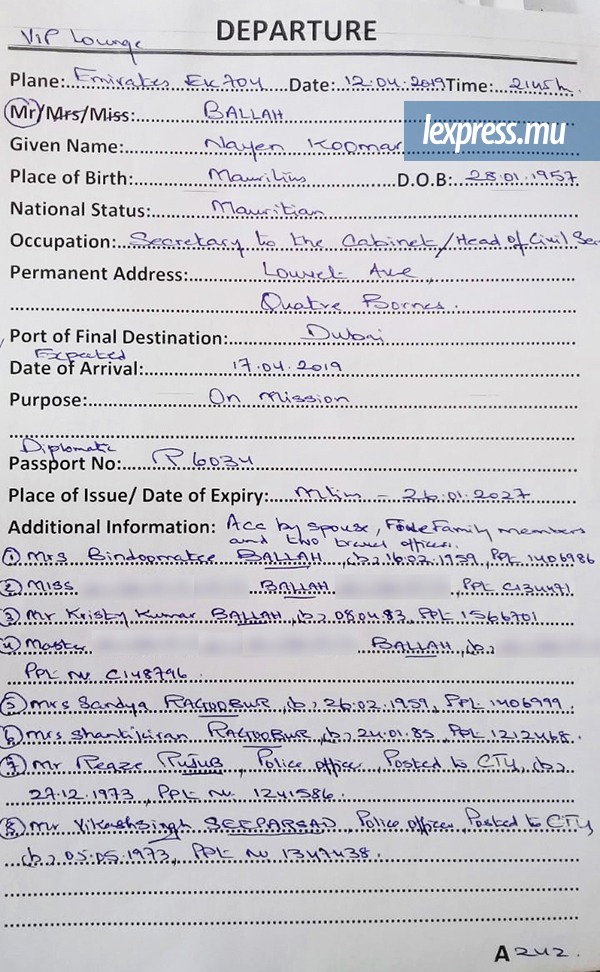 VIP Lounge
DEPARTURE
Plane: Emirates EK704 Date: 12.04.2019 Time: 2145h.
Mr/Mrs/Miss: BALLAH
lexpress.mu
Given Name: Nayen Koomar
Place of Birth: Mauritius D.O.B: 28.01.1957
National Status: Mauritian
Occupation: Secretary to the Cabinet/Head of Civil Ser
Permanent Address: Louvet Ave,
Quatre Bornes.
Port of Final Destination: Dubai
Expected
Date of Arrival: 17.04.2019
Purpose: On Mission
Diplomatic
Passport No: P 6034
Place of Issue/ Date of Expiry: Mtius - 26.01.2027
Additional Information: Acc by spouse, Family members
and two travel officers.
① Mrs Bindoomatee BALLAH, (b) 16.02.1959, PPt 1406986
② MISS BALLAH , PPt C134471
③ Mr Kristy Kumar BALLAH, (b) 08.04.83, PPt 1566701
④ Master BALLAH, (b)
PPt No C148796.
⑤ Mrs Sandya RAGOOBUR, (b) 26.02.1959, PPt 1406999.
⑥ Mrs Shantikiran RAGOOBUR, (b) 24.01.85, PPt 1212468.
⑦ Mr Reaze RUJUB, Police officer, Posted to CTU, (b)
27.12.1973, PPt No. 1241586.
⑧ Mr Vikashsingh SEEPARSAD, Police officer, Posted to CTU,
(b) 05.05.1973, PPt No 1347438.
A 242.